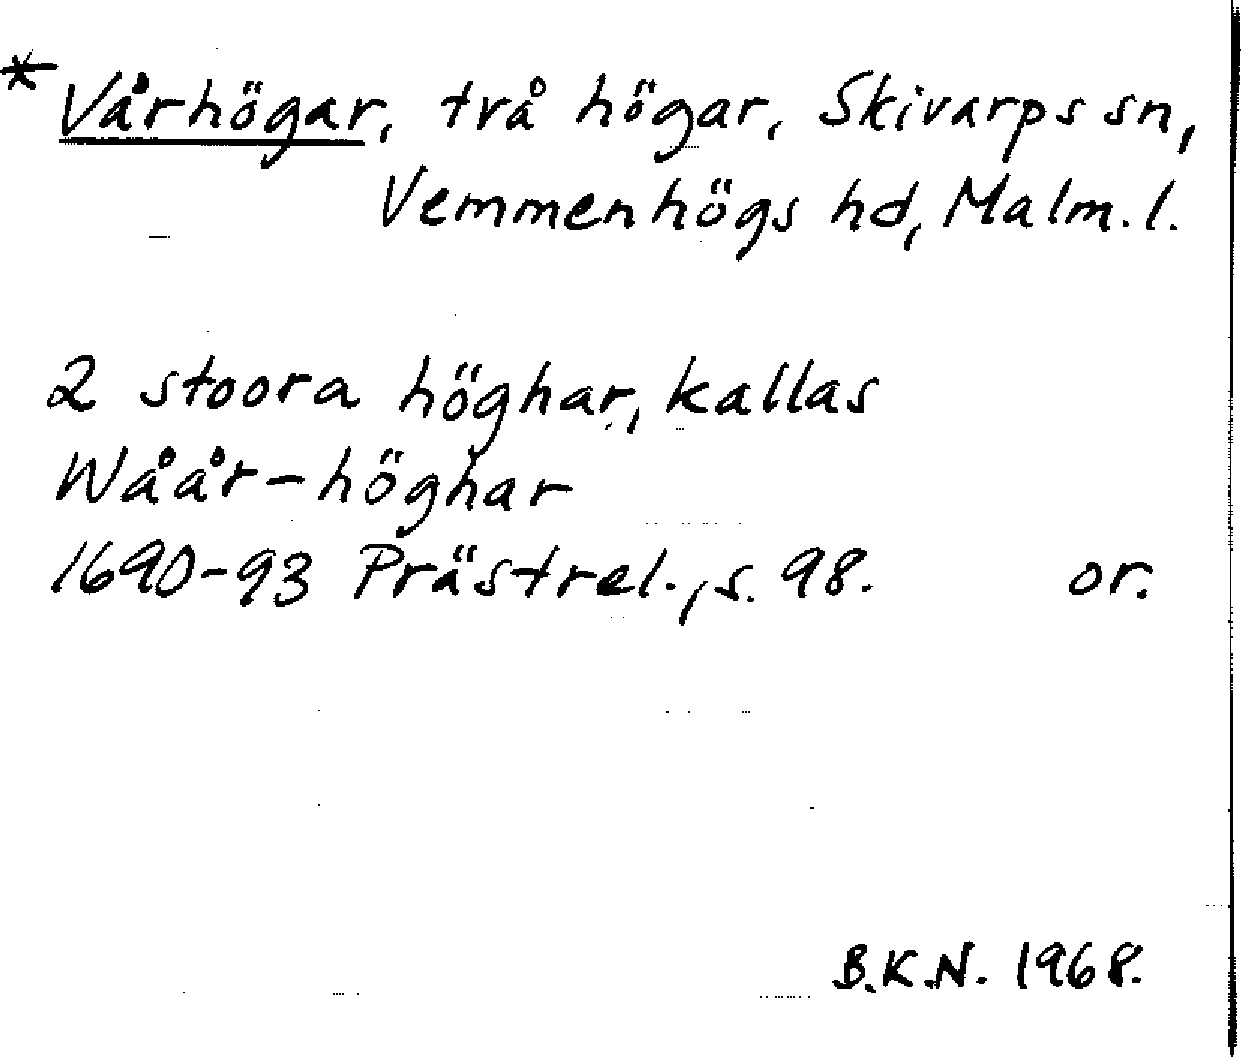 *Vårhögar, två högar, Skivarps sn,
Vemmenhögs hd, Malm. l.
2 stoora höghar, kallas
Wåår-höghar
1690-93 Prästrel., s. 98. or.
B.K.N. 1968.